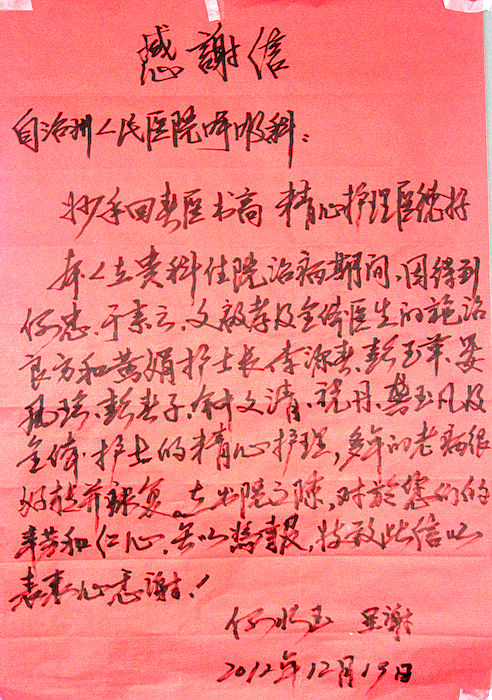 感謝信
自治州人民医院呼吸科：
妙手回春医术高 精心护理医德好
本人在贵科住院治病期间，因得到
何忠、于素云、文敬孝及全体医生的施治
良方和黄娟护士长、李源春、彭玉苹、晏
凤瑶、彭春子、付文清、祝丹、龚玉凡及
全体护士的精心护理，多年的老病很
好转并康复。在出院之际，对於您们的
辛劳和仁心，无以为报，特致此信以
表衷心感谢！
何 玉 呈谢
2012年12月19日